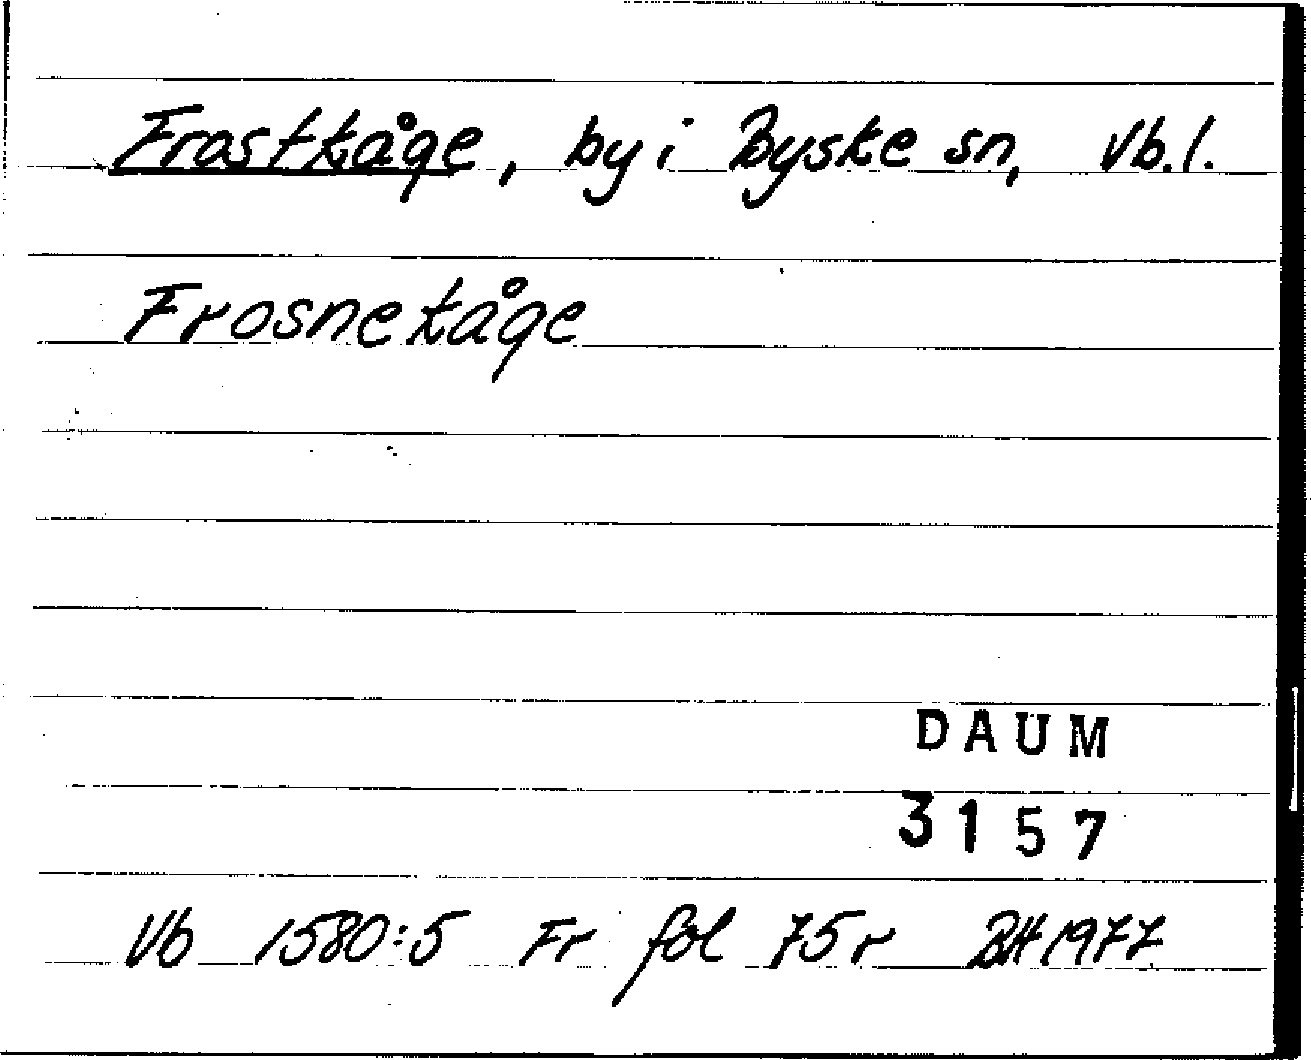 Frostkåge, by i Byske sn, Vb. l.
Frosnekåge
DAUM
3157
Vb 1580:5 Fr fol 75 r BH 1977